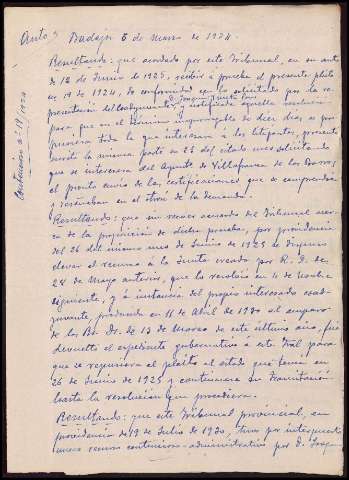 Auto = Badajoz 5 de Marzo de 1934.
Resultando: que acordado por este Tribunal, en su auto
de 12 de Junio de 1925, recibir a prueba el presente pleito
nº 19 de 1924, de conformidad con lo solicitado por la re-
presentación del D. Joaquín y notificada aquella resolución
para que en el término improrrogable de diez días se pro-
pusiera toda la que interesara a los litigantes, presentó
escrito la misma parte en 22 del citado mes solicitando
que se interesara del Agente de Villafranca de los Barros,
el pronto envío de las certificaciones que se comprendían
y reseñaban en el otrosí de la demanda.
Resultando: que sin recaer acuerdo del Tribunal acer-
ca de la proposición de dicha prueba, por providencia
del 26 del mismo mes de Junio de 1925 se dispuso
elevar el recurso a la Junta creada por R. D. de
28 de Mayo anterior, que lo devolvió en 4 de Octubre
siguiente, y a instancia del propio interesado coad-
yuvante, producida en 11 de Abril de 1930 al amparo
de los Rs. Ds. de 13 de Marzo de este último año, fué
devuelto el expediente gubernativo a este Tral. para
que se repusiera el pleito al estado que tenía en
26 de Junio de 1925 y continuara su tramitación
hasta la resolución que procediera.
Resultando: que este Tribunal provincial, en
providencia de 19 de Julio de 1930, tuvo por interpuesto
recurso contencioso-administrativo por D. Joaq
Contencioso nº 19/1924